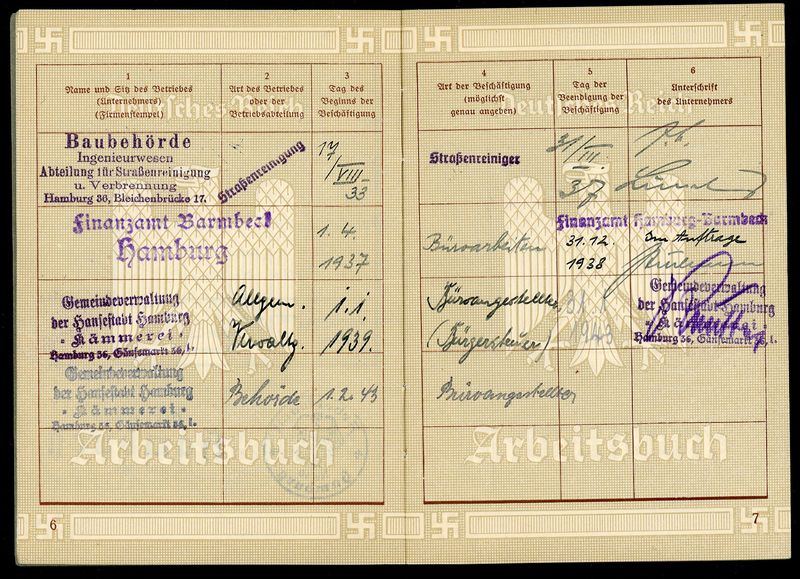 1
Name und Sitz des Betriebes
(Unternehmers)
(Firmenstempel)
2
Art des Betriebes
oder der
Betriebsabteilung
3
Tag des
Beginns der
Beschäftigung
Deutsches Reich
Baubehörde
Ingenieurwesen
Abteilung für Straßenreinigung
u. Verbrennung
Hamburg 36, Bleichenbrücke 17.
Straßenreinigung
17
/VIII
33
Finanzamt Barmbeck
Hamburg
1.4.
1937
Gemeindeverwaltung
der Hansestadt Hamburg
• Kämmerei •
Hamburg 36, Gänsemarkt 36, I.
Allgem.
Verwaltg.
1.1.
1939.
Gemeindeverwaltung
der Hansestadt Hamburg
• Kämmerei •
Hamburg 36, Gänsemarkt 36, I.
Behörde
1.2.43
Arbeitsbuch
6
4
Art der Beschäftigung
(möglichst
genau angeben)
5
Tag der
Beendigung der
Beschäftigung
6
Unterschrift
des Unternehmers
Deutsches Reich
Straßenreiniger
31/
III.
37
Büroarbeiten
Finanzamt Hamburg-Barmbeck
31.12.
1938
Im Auftrage
Büroangestellter
(Bürgersteuer)
31
1943
Gemeindeverwaltung
der Hansestadt Hamburg
• Kämmerei •
Hamburg 36, Gänsemarkt 36, I.
Büroangestellter
Arbeitsbuch
7